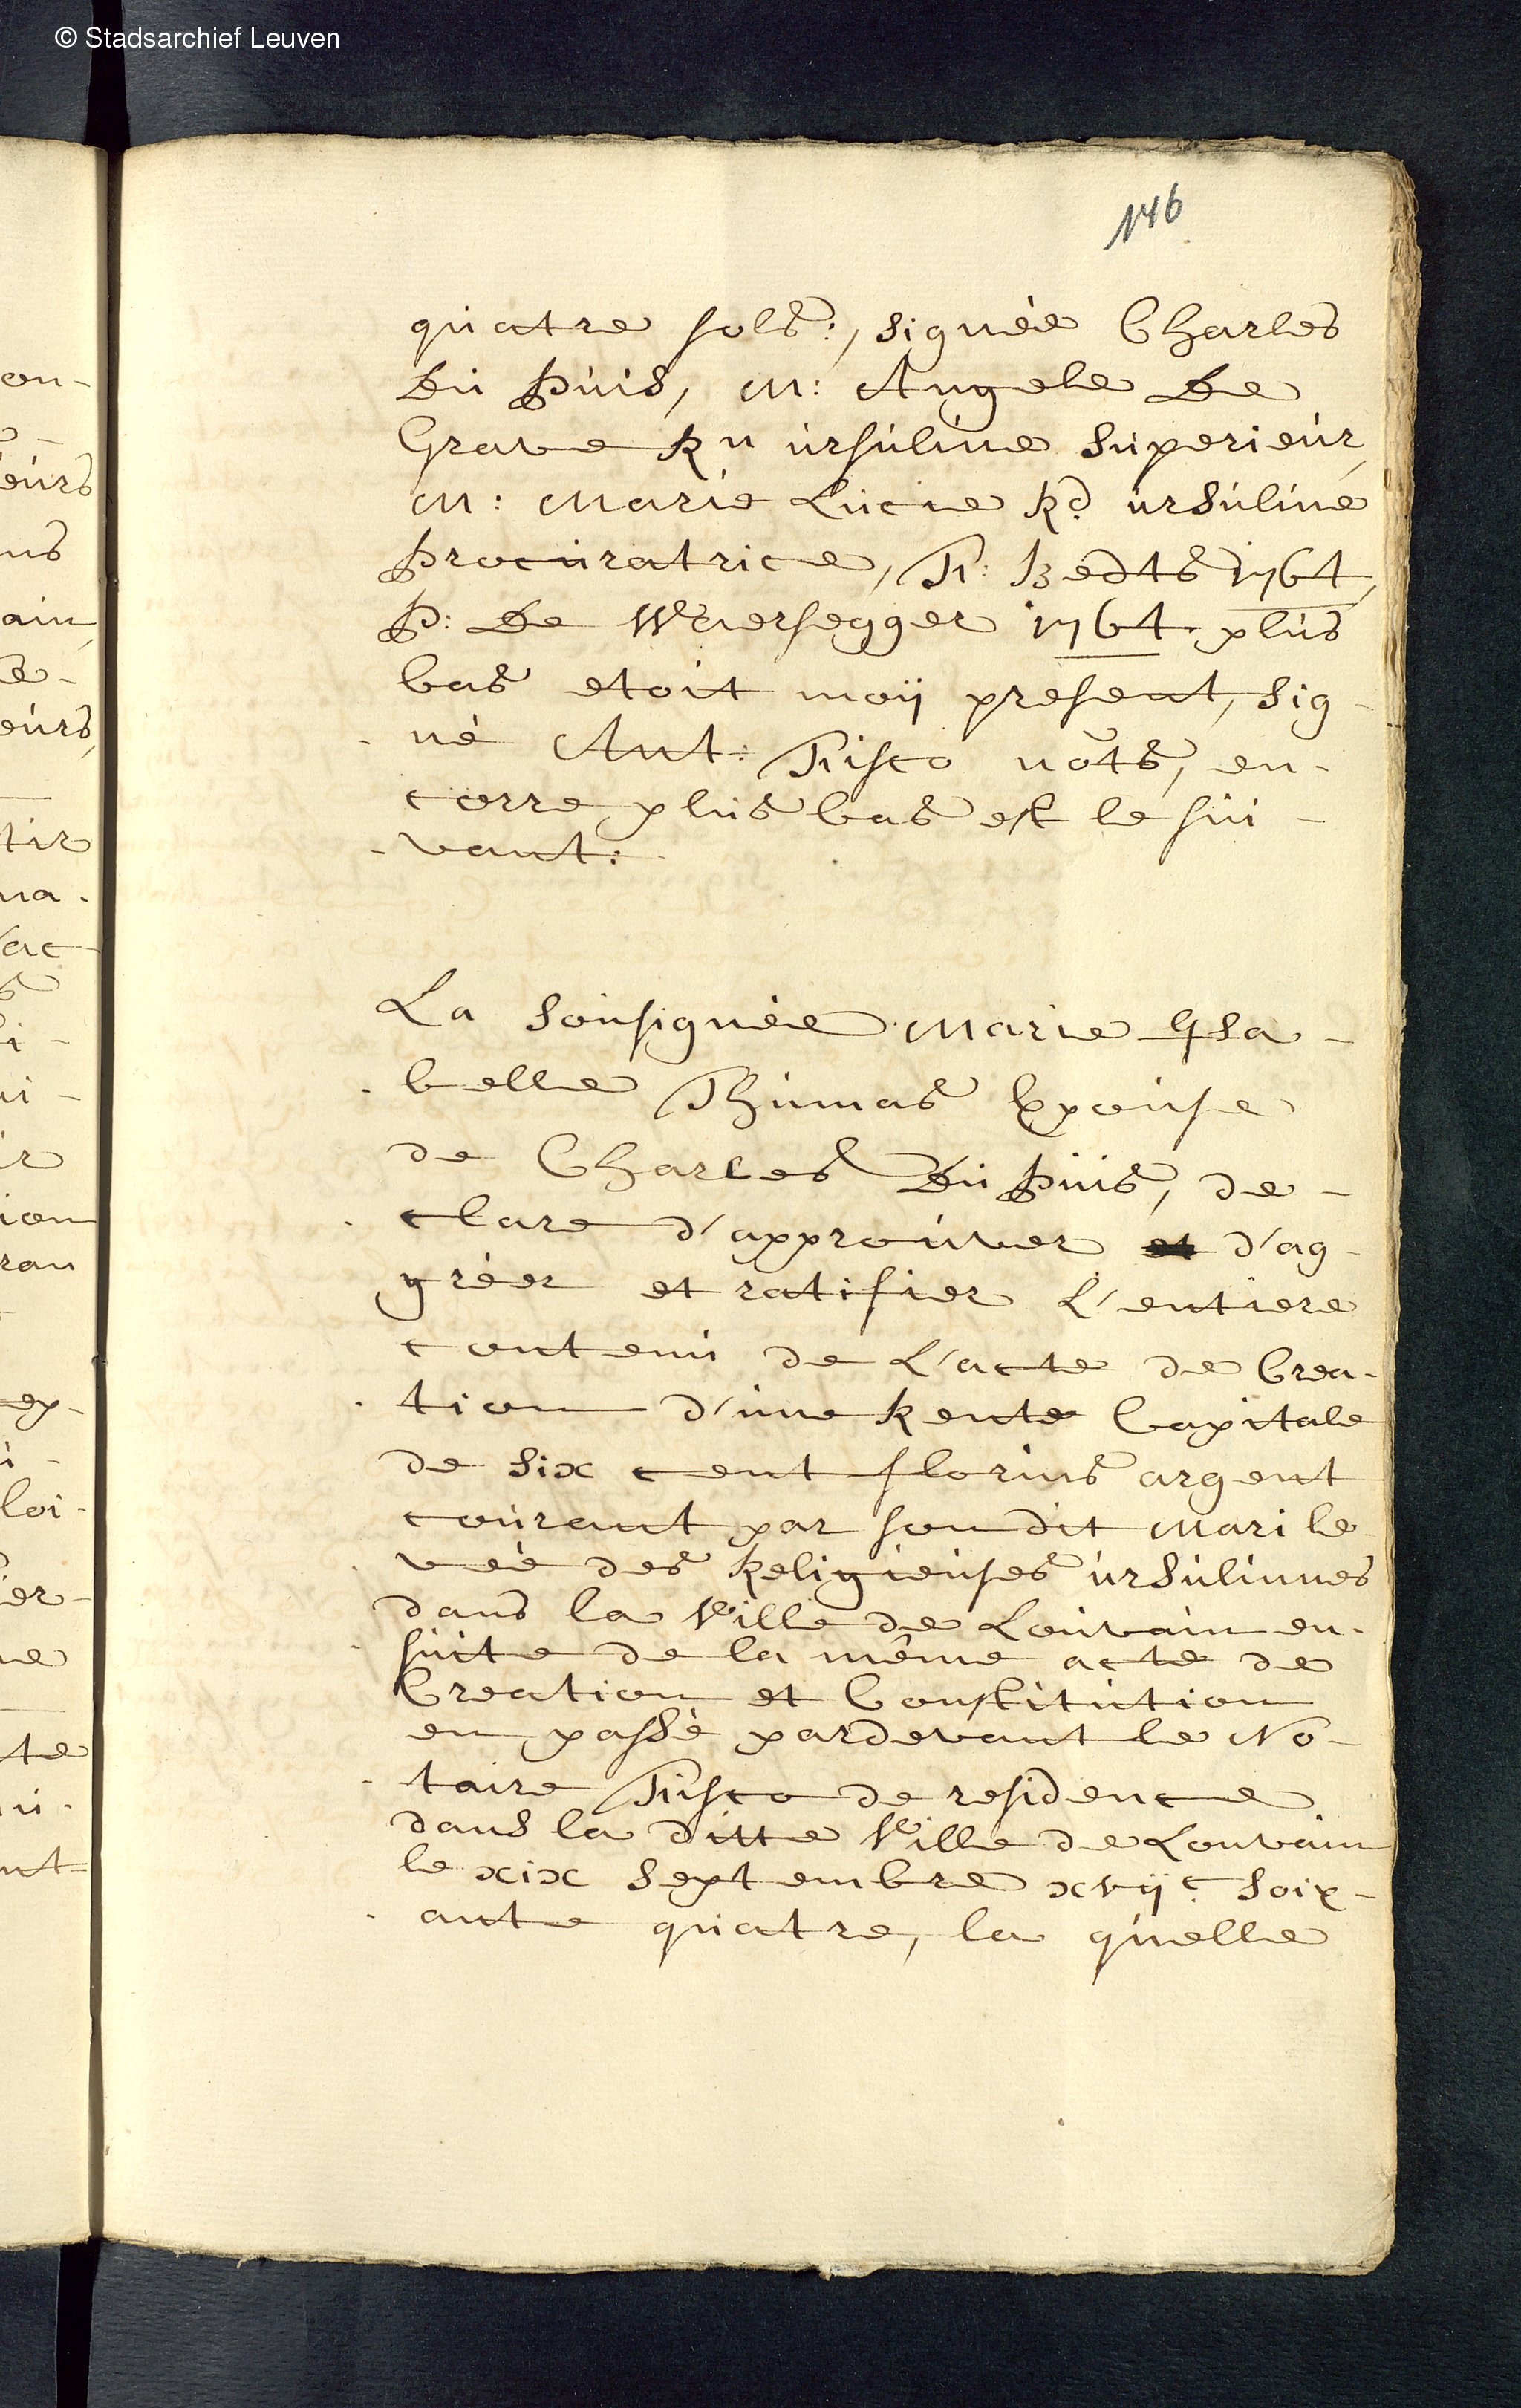 © Stadsarchief Leuven
146
quatre sols:, signée Charles
Du Puis, M: Angele De
Grave Rn ursuline superieur,
M: Marie Lucie Rd. ursuline
procuratrice, T: Bedts 1764,
P: De Waersegger 1764 plus
bas etoit moÿ present, sig-
-né Ant: Tisco nots, en-
corre plus bas est le sui-
-vant:
La sousignée Marie Isa-
-belle Thumas Epouse
de Charles Du Puis, de-
-clare d'approuver d'ag-
gréer et ratifier L'entiere
contenu de L'acte de Crea-
-tion d'une Rente Capitale
de six cent florins argent
courant par son dit Mari le
-veé des Religieuses ursulinnes
dans la Ville de Louvain en-
-suite de la même acte de
Creation et Constitution
en passé pardevant le No-
-taire Tisco de residence
dans la ditte Ville de Louvain
le xix septembre xvijc. soix-
-ante quatre, la quelle
on-
eurs
ns
ain,
e-
eurs,
tir
na-
ac-
i-
ir
ion
ran
ex-
loi-
ier-
ne
te
u-
nt